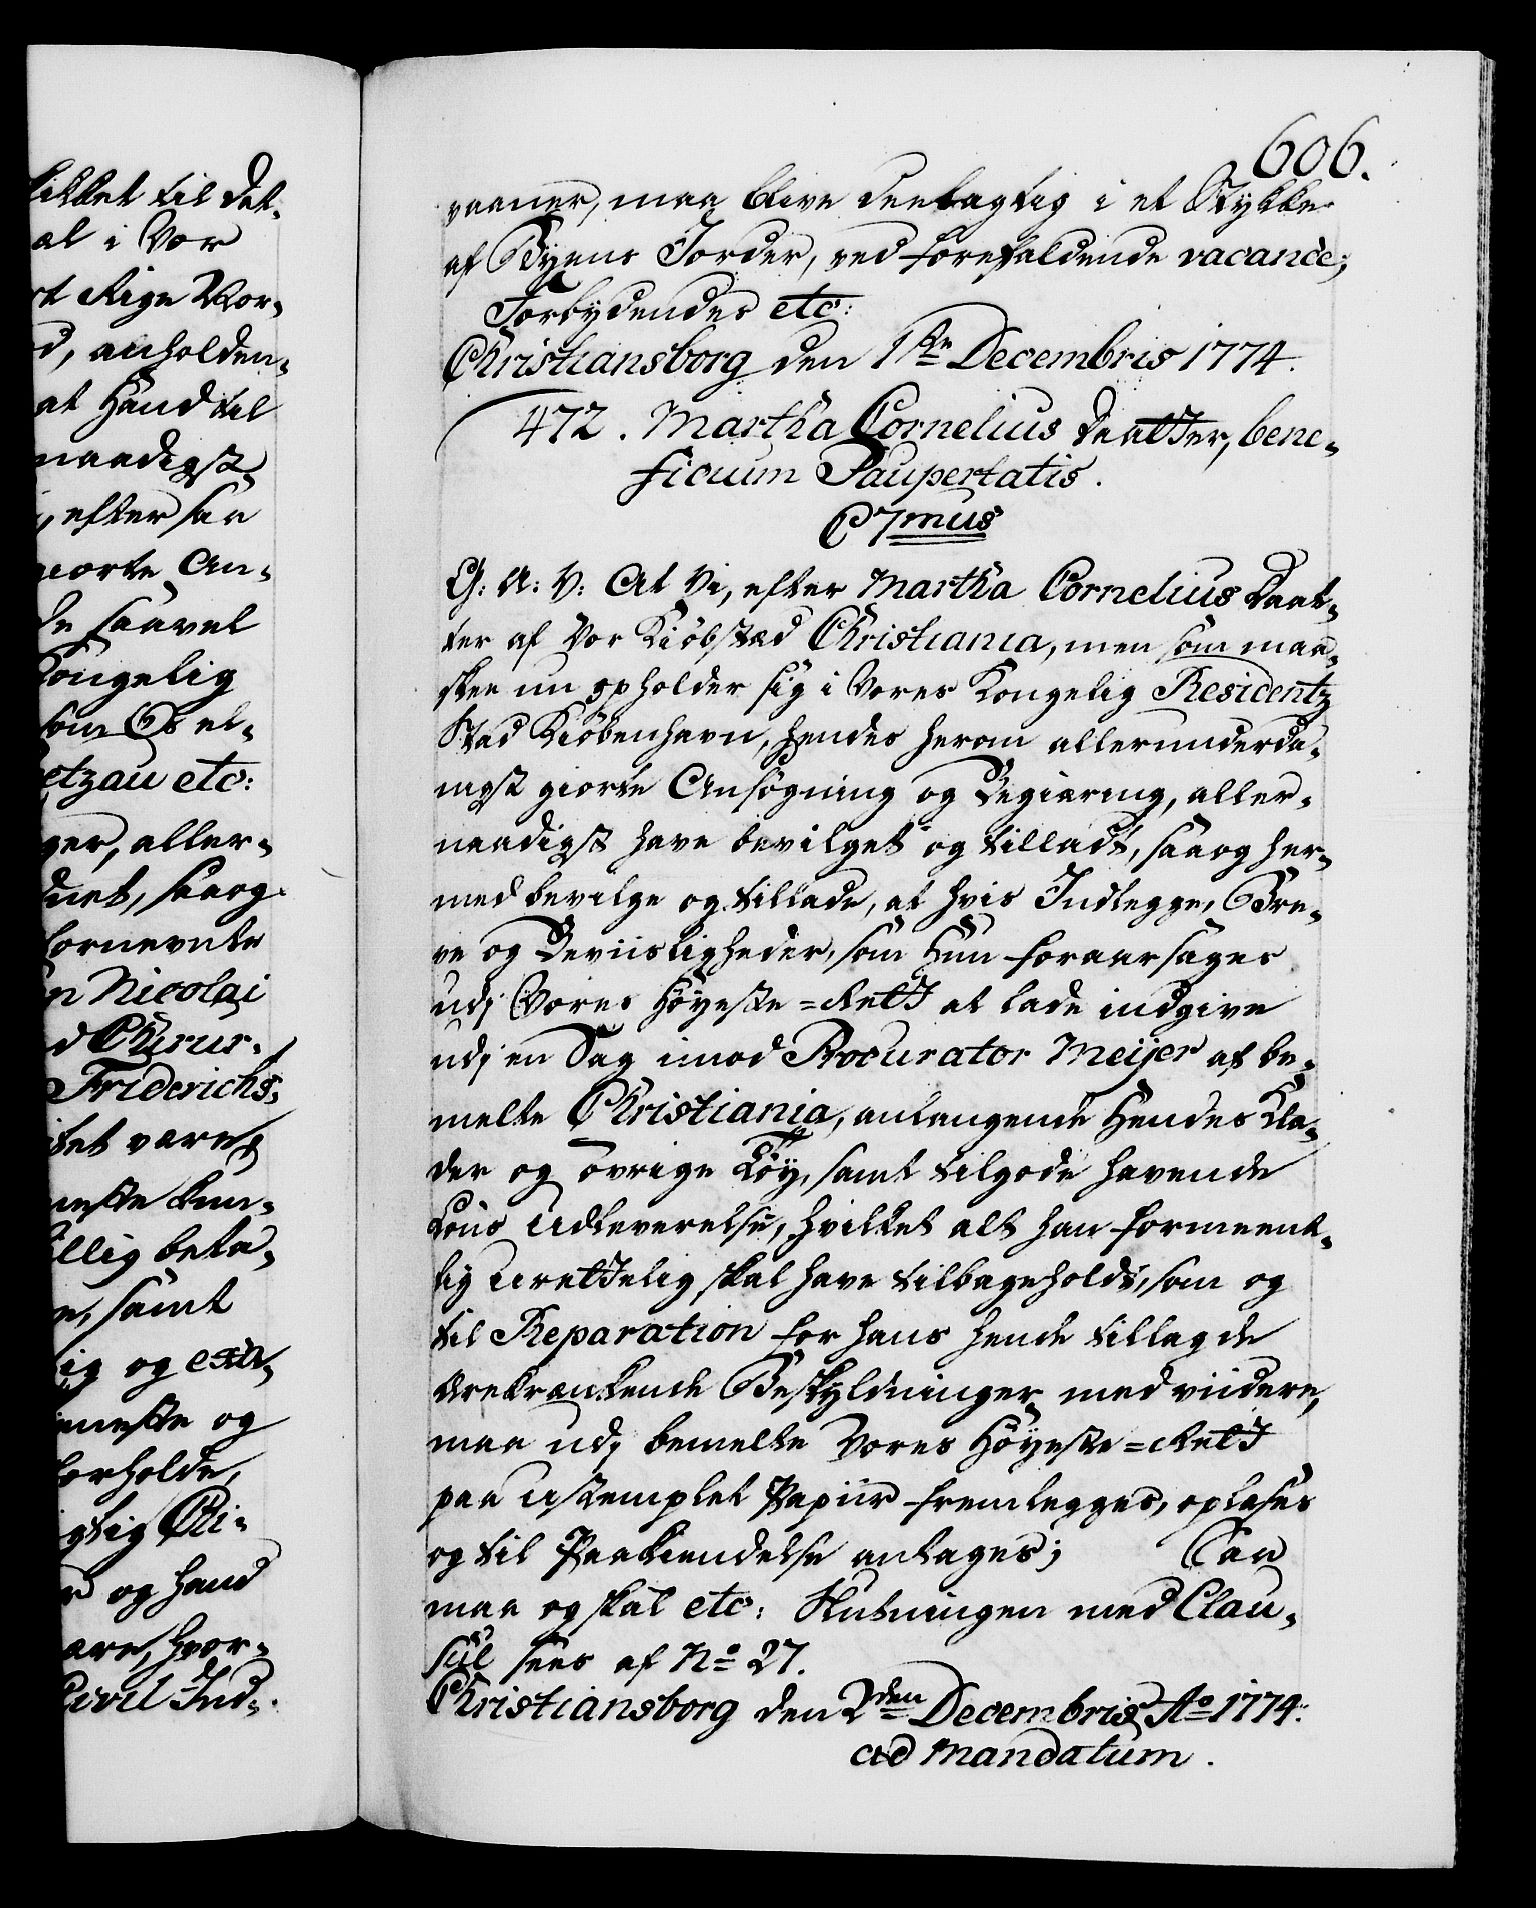 606.
ikket til det-
al i Vor
rt Rige Nor-
d, anholden-
at Haand til
naadigst
, efter saa
giorte An-
de saavel
Kongelig
som Os el-
etzau etc:
ger, aller-
net, saa og
fornevnte
n Nicolai
d Chirur-
Friderichs-
tet være,
neste kun-
illig beta-
e, samt
ig og exa-
meste og
forholde,
gtig Chi-
r og hand
are, hvor-
Civil Ind-
vaaner, maa blive deelagtig i et Stykke
af Byens Jorder, ved forefaldende vacance;
Forbydendes etc:
Christiansborg den 1ste Decembris 1774.
472. Martha Cornelius Daatter, bene-
ficium Paupertatis.
C7mus
G: A: V: At Vi, efter Martha Cornelius Daat-
ter af Vor Kiøbstæd Christiania, men som maa-
skee nu opholder sig i Vores Kongelig Residentz
Stad Kiøbenhavn, hendes herom allerunderda-
nigst giorte Ansøgning og Begiæring, aller-
naadigst have bevilget og tilladt, saa og her-
med bevilge og tillade, at hvis Indlegge, Bre-
ve og Beviisligheder, som Hun foraarsages
udj Vores Høyeste=Rett at lade indgive
udj en Sag imod Procurator Meijer af be-
melte Christiania, anlangende Hendes Klæ-
der og øvrige Tøy, samt tilgode havende
Løns Udleverelse, hvilket alt han formeent-
lig Urettelig skal have tilbageholdt, som og
til Reparation for hans hende tillagde
ærekrænkende Beskyldninger med viidere,
maa udj bemelte Vores Høyeste=Rett
paa ustemplet Papiir fremlegges, oplæses
og til Paakiendelse antages; Saa
maa og skal etc: Slutningen med Clau-
sul sees af No 27.
Christiansborg den 2den Decembris Ao 1774.
ad mandatum.